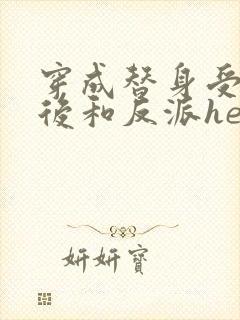 穿成替身受
後和反派he
妍妍寶